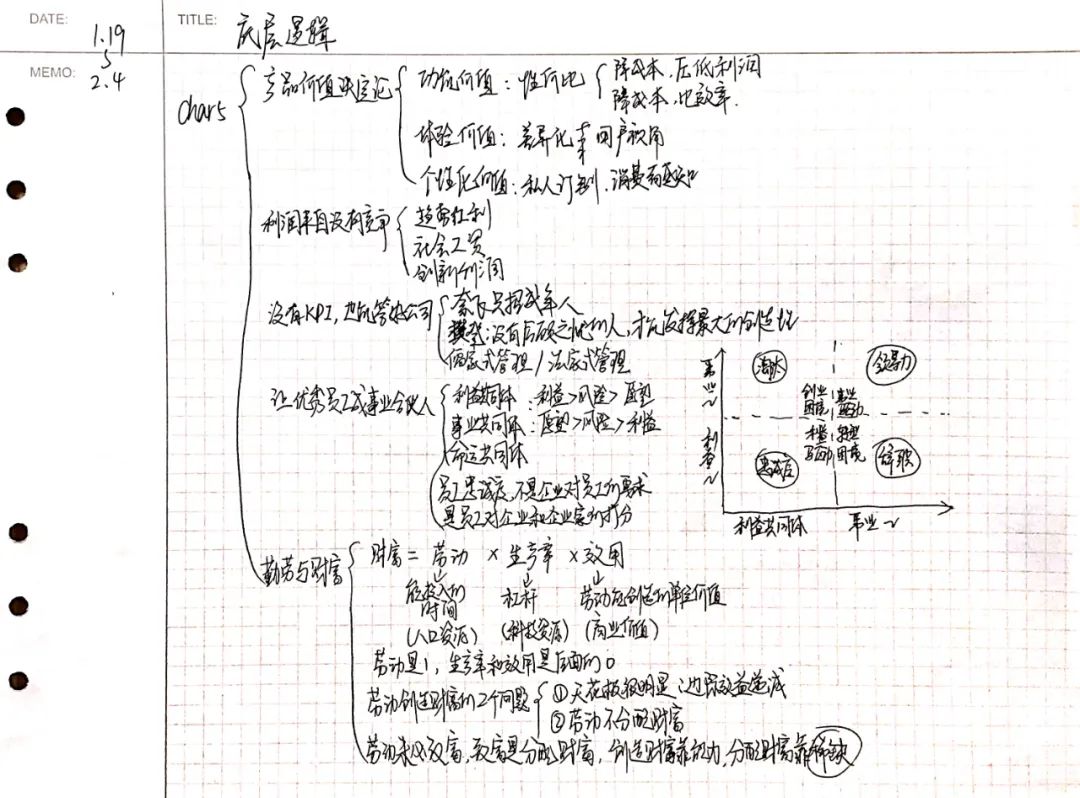 DATE:
1.19
5
2.4
TITLE: 底层逻辑
MEMO:
char5
产品价值决定论
功能价值:性价比
降成本,压低利润
降成本,比效率.
体验价值:差异化 用户视角
个性化价值:私人订制.消费者
利润来自没有竞争
趋势红利
社会工资
创新利润
没有KPI,也能管好公司
奈飞只招成年人
樊登:没有后顾之忧的人,才能发挥最大的创造性
儒家式管理/法家式管理
让优秀员工成事业合伙人
利益共同体:利益>风险>愿望
事业共同体:愿望>风险>利益
命运共同体
员工忠诚度,不是企业对员工的要求
是员工对企业和企业家的打分
事业~
利益~
淘汰
领导力
创业困境
事业驱动
利益驱动
困境
忠诚度
稀缺
利益共同体
事业~
勤劳与财富
财富=劳动×生产率×效用
能投入的时间
杠杆
劳动所创造的单位价值
(人口资源)(科技资源)(商业价值)
劳动是1,生产率和效用是后面的0
劳动创造财富的2个问题
①天花板很明显:边际效益递减
②劳动不分配财富
劳动未必致富,致富是分配财富,创造财富靠能力,分配财富靠稀缺